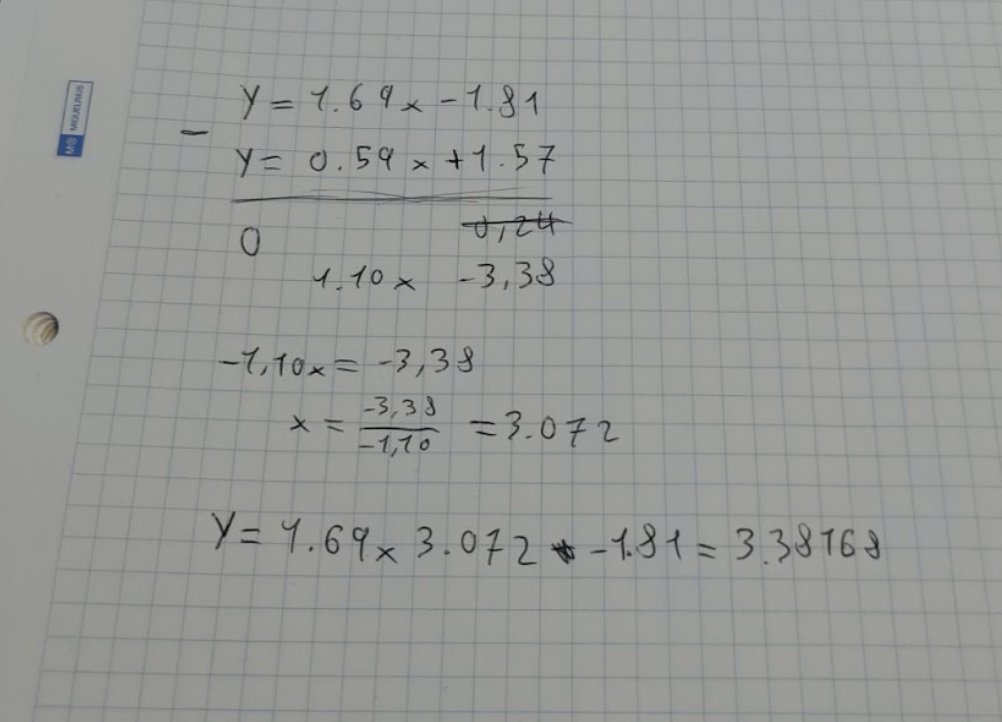 MIQUELRIUS
y = 1.69x - 1.81
-
y = 0.59x + 1.57
0 0,24
1.10x -3,38
-1,10x = -3,38
x = -3,38 / -1,10 = 3.072
y = 1.69 x 3.072 -1.81 = 3.38168